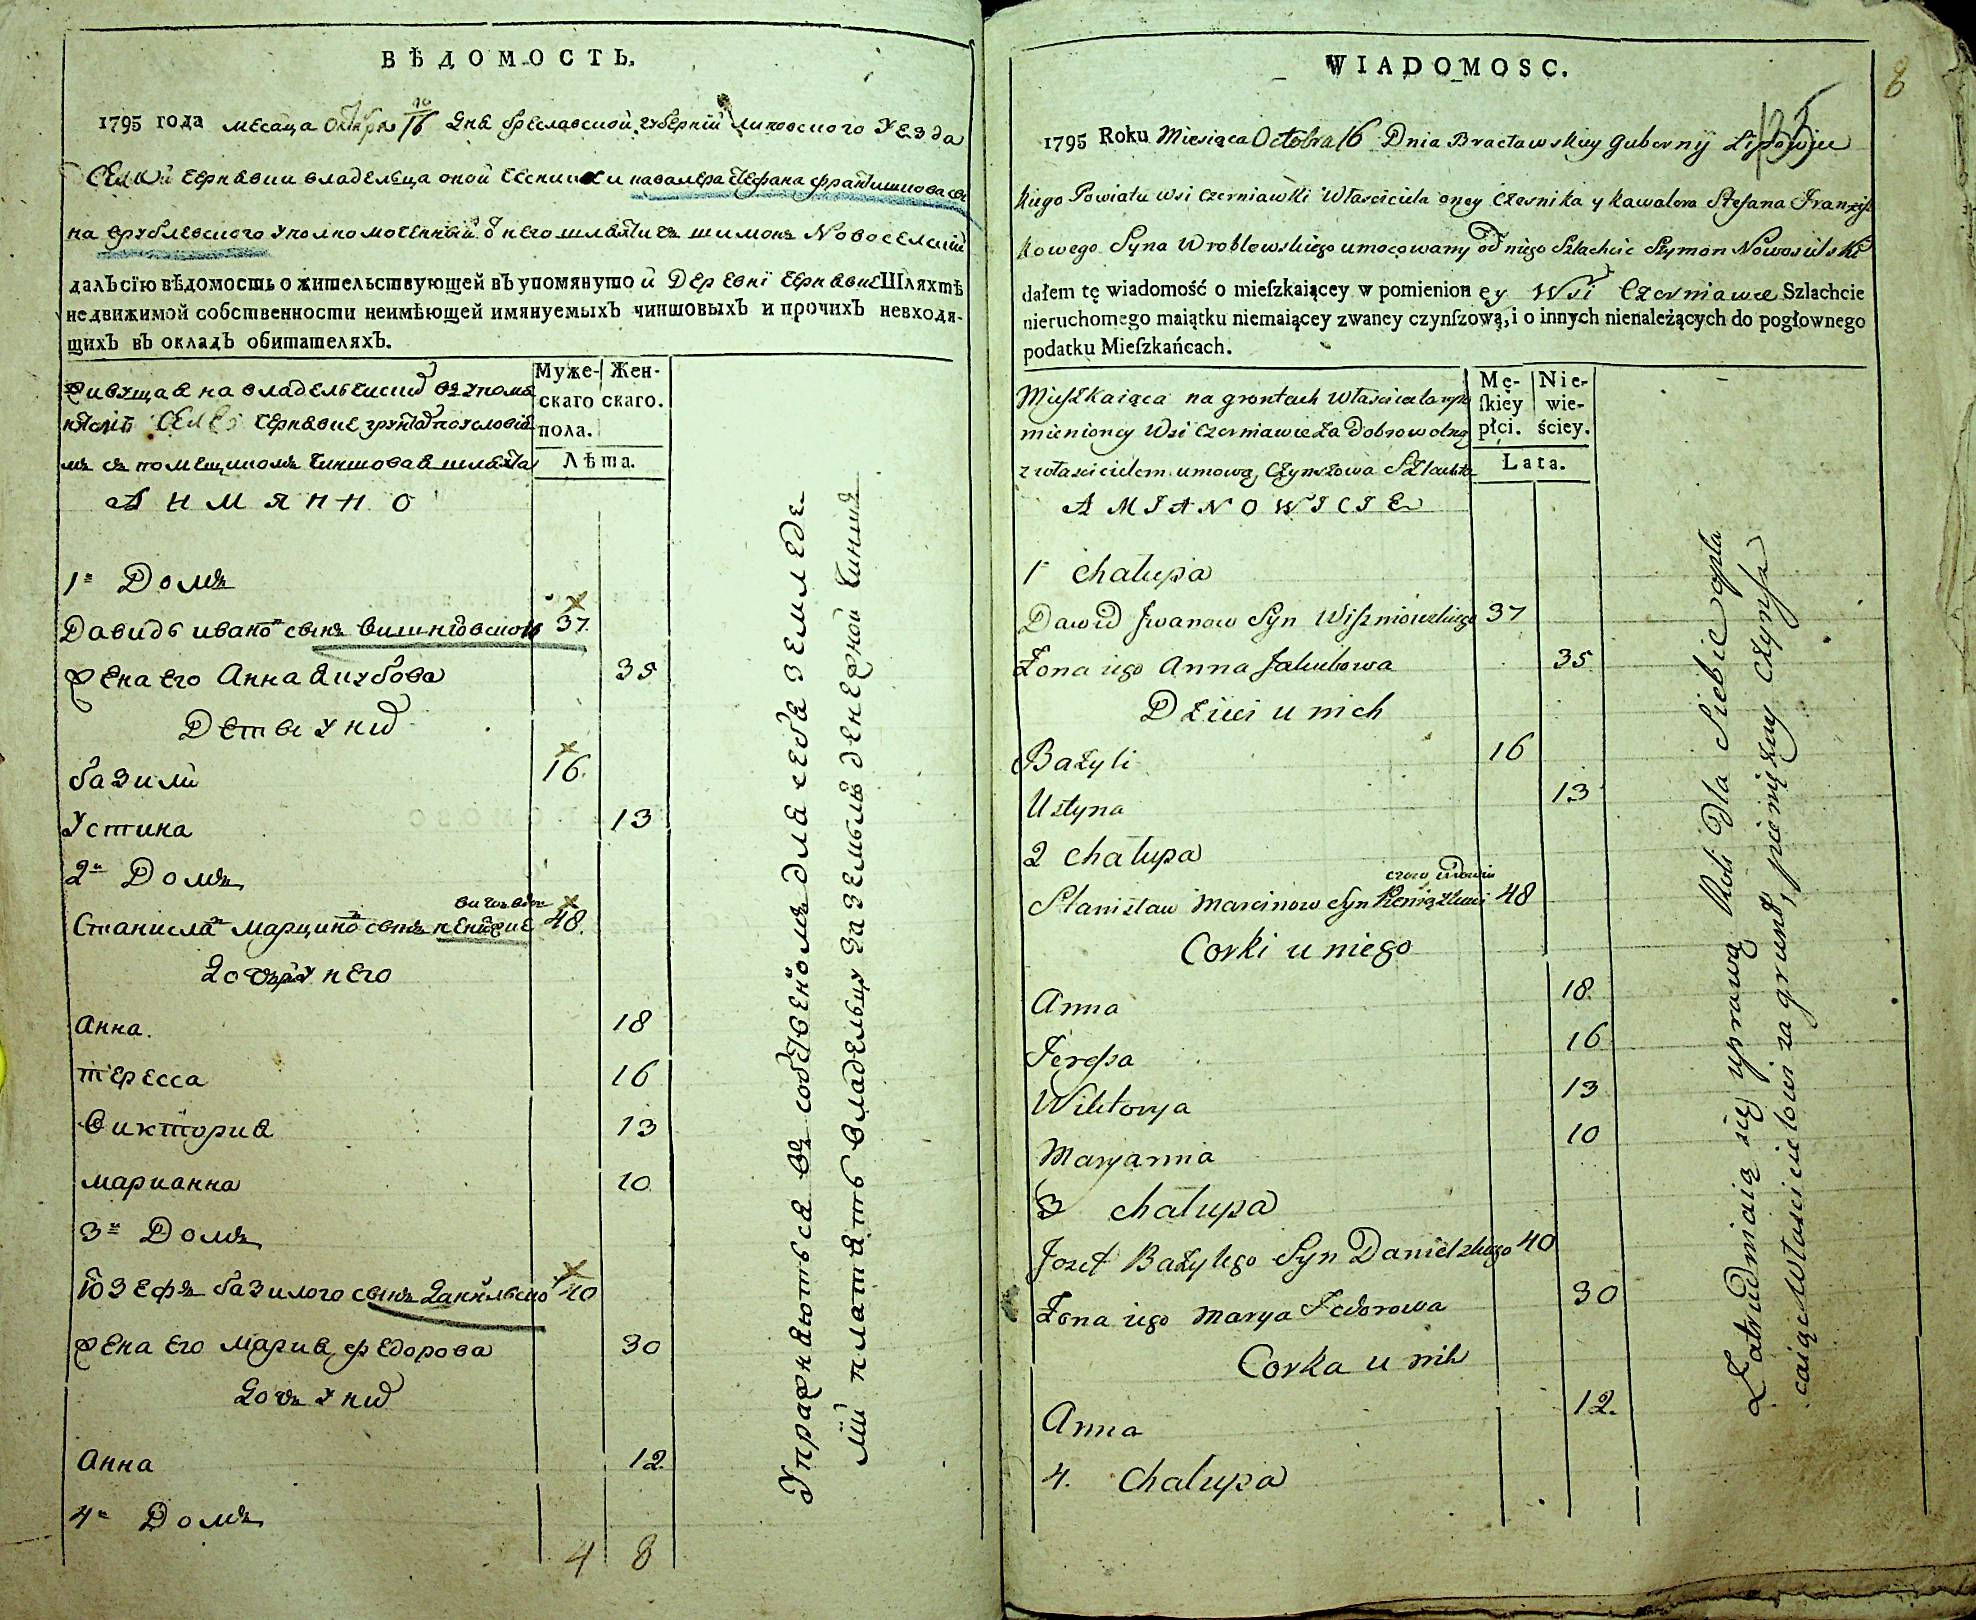 ВѢДОМОСТЬ.
1795 года месаца октября 16 дня Бреславской губернии Липовского уезда
владельца оной и кавалера Стефана
на врублевского уполномоченный от него шляхтичъ шимонъ Новоселский
далъ сїю вѣдомость о жительствующей въ упомянутой Деревнї Чернавке Шляхтѣ
недвижимой собственности неимѣющей имянуемыхъ чиншовыхъ и прочихъ невходя-
щихъ въ окладъ обитателяхъ.
Муже-
скаго
пола.
Жен-
скаго.
Лѣта.
живущая на владелческий въ упомя
мъ съ помещикомъ чиншовая шляхта
А ИМЯННО
1й Домъ
Давидъ иванов сынъ 37
жена его Анна якубова 35
Дети у них
базили 16.
Устина 13
2й Домъ
Станислав марцинов сынъ 48.
дочери у него
Анна. 18
тересса 16
Виктория 13
марианна 10
3й Домъ
Юзефъ базилого сынъ 40
жена его мария федорова 30
дочь у них
Анна 12
4й Домъ
4 8
Упражняются въ собственномъ для себя землede
лии платятъ владельцу за земьлю денежной чиншъ
8
WIADOMOSC.
1795 Roku Miesiąca Octobra 16 Dnia Bracławskiey Gubernÿ Lipowie
kiego Powiatu wsi Czerniawki Właściciela oney Czesnika y kawalera Stefana Franzis
kowego Syna Wroblewskiego umocowany od niego Szlachcic Szymon Nowosielski
dałem tę wiadomość o mieſzkaiącey w pomienion ęy Wsi Czerniawce Szlachcie
nieruchomego maiątku niemaiącey zwaney czynſzową, i o innych nienależących do pogłownego
podatku Mieſzkańcach.
Mę-
ſkiey
płci.
Nie-
wie-
ściey.
Lata.
Mieszkaiąca na grontach właściciela w po
mienioney Wsi Czerniawce za dobrowolną
z właścicielem umową, Czynszowa Szlachta
A MIANOWICIE
1 chałupa
Dawid Jwanow Syn Wiszniowskiego 37
Żona iego Anna Jakubowa 35
Dzieci u nich
Bazyli 16
Ustyna 13
2 chałupa
Stanisław Marcinow Syn 48
Corki u niego
Anna 18
Teressa 16
Wiktorya 13
Maryanna 10
3 chałupa
Jozef Bazylego Syn Danielskiego 40
Żona iego Marya Fedorowa 30
Corka u nich
Anna 12.
4. Chałupa
Zatrudniaią się uprawą Roli dla Siebie opła
caiąc Właścicielowi za grunt, pieniężny czynsz